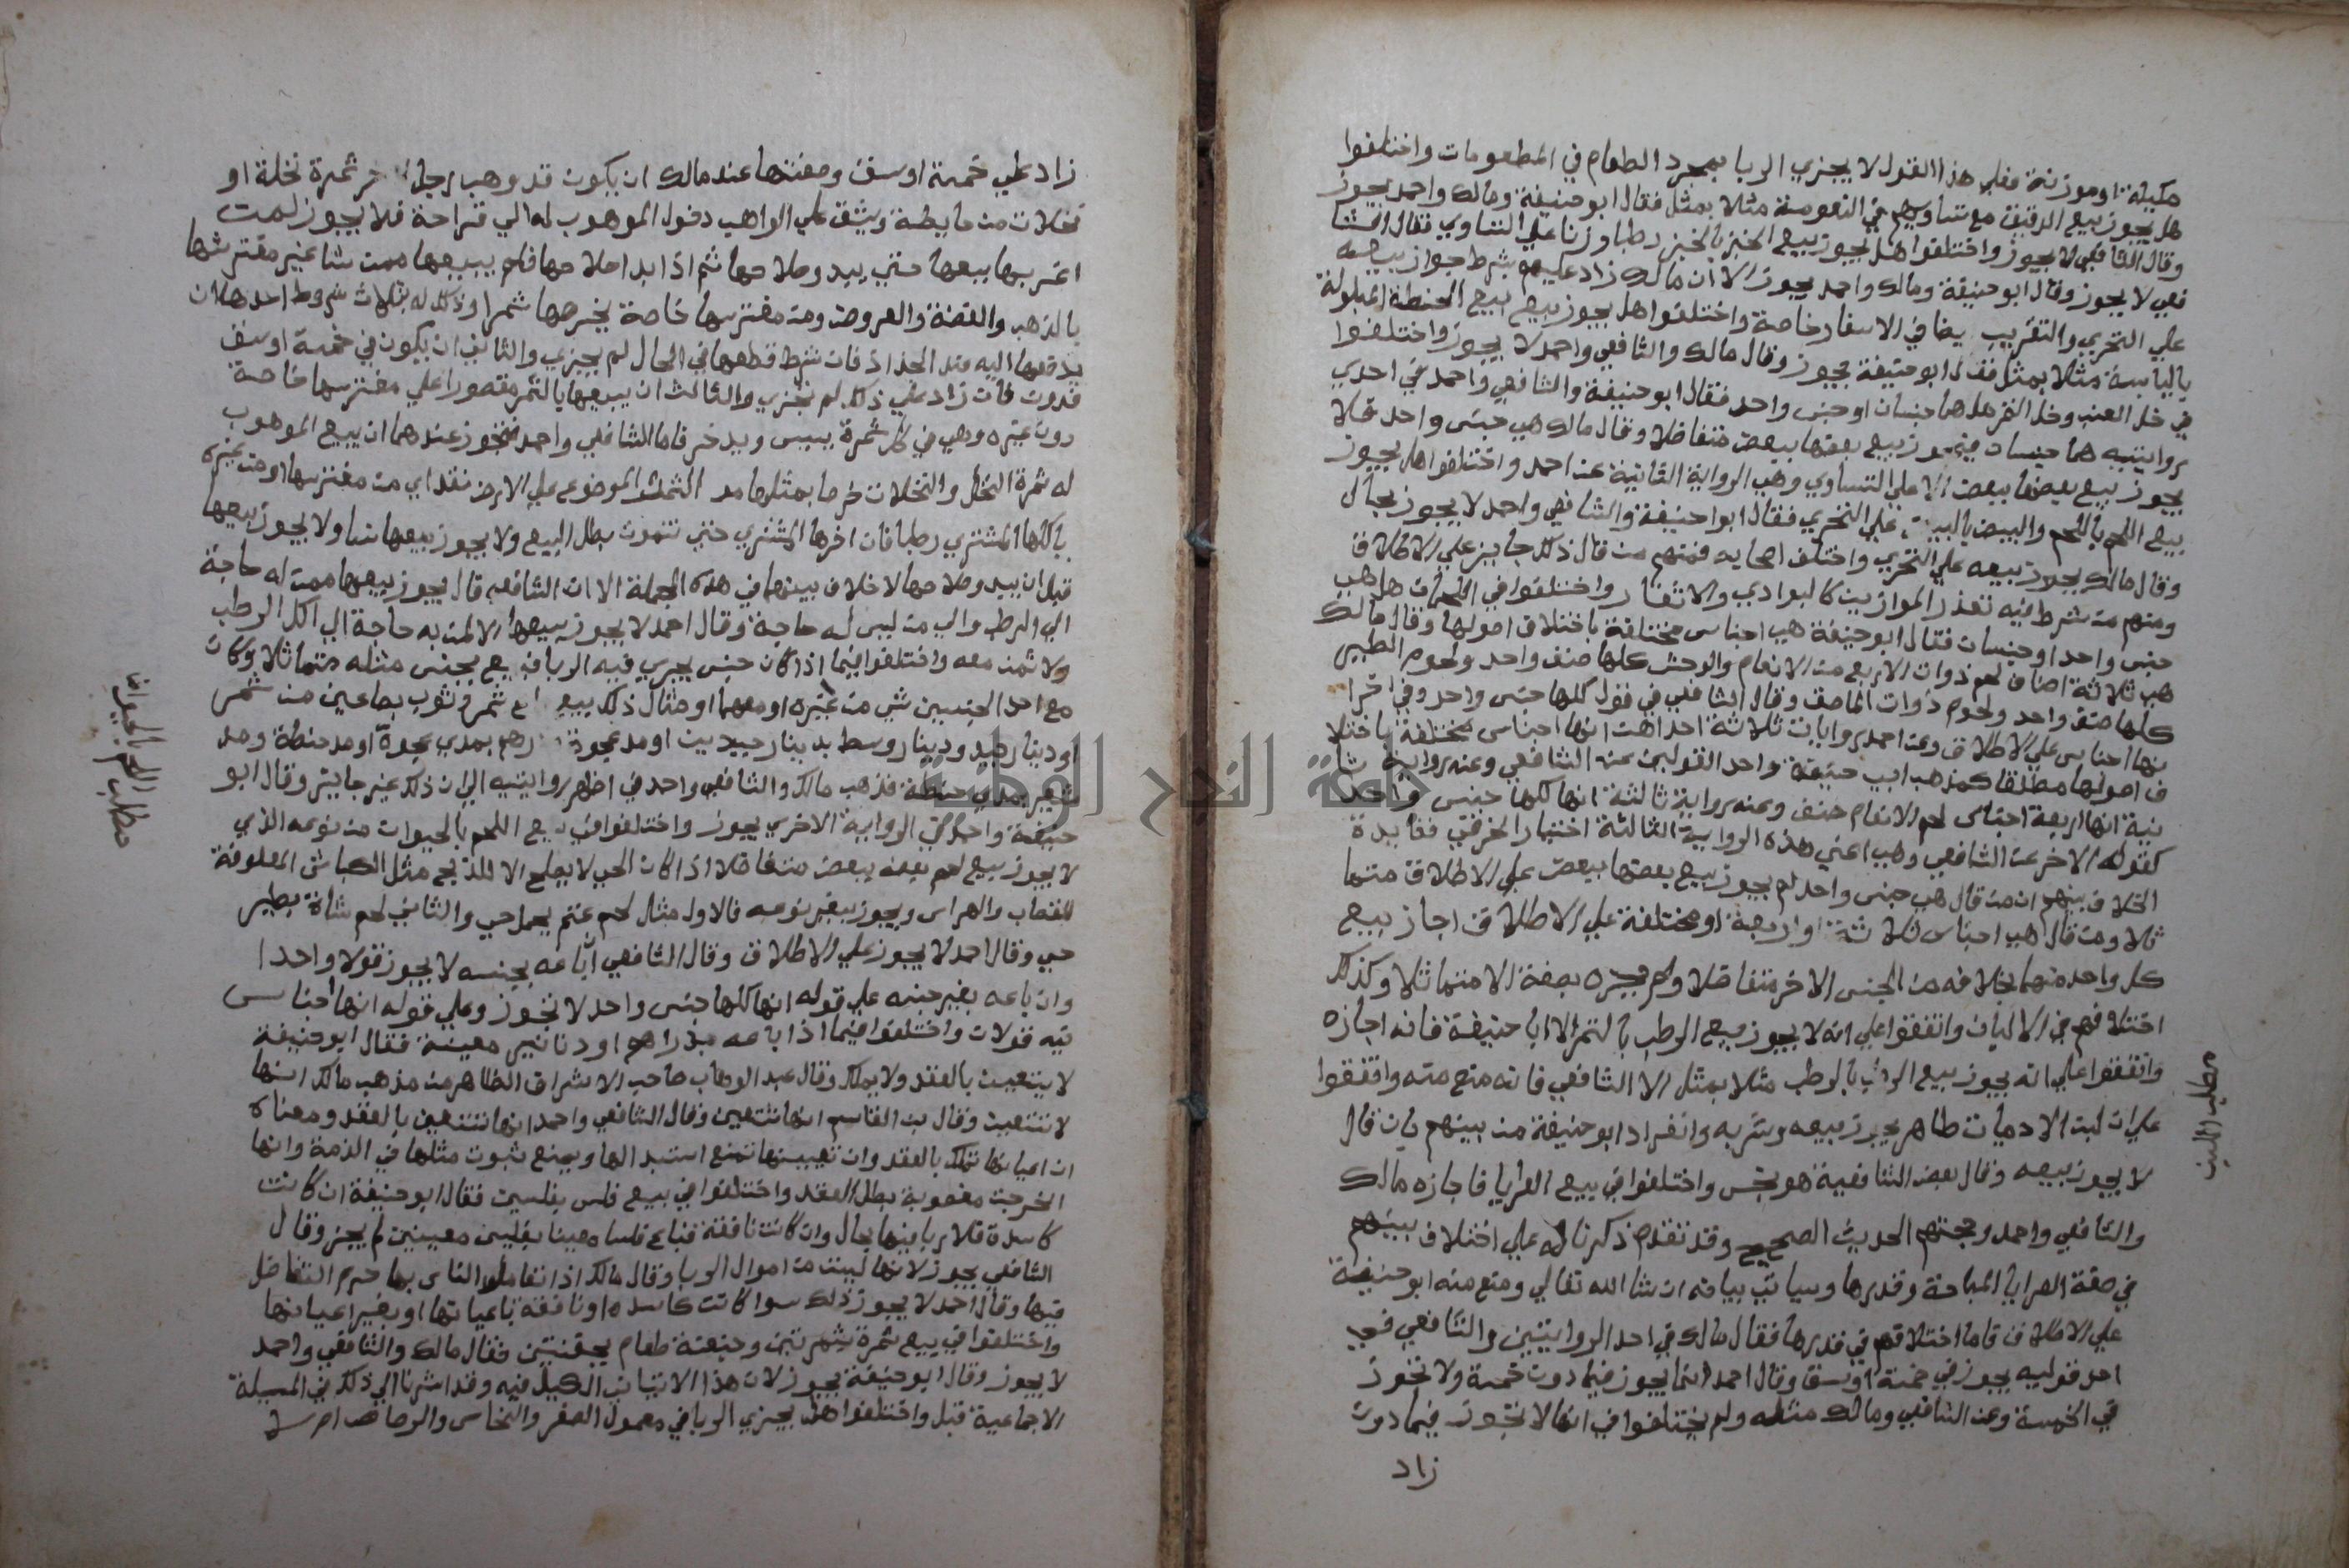 مكيلة او موزونة فعلي هذا القول لا يجزي الربا بمجرد الطعام في المطعومات واختلفوا
هل يجوز بيع الدقيق مع تساويهم في النعومة مثلا بمثل فقال ابو حنيفة ومالك واحمد يجوز
وقال الشافعي لا يجوز واختلفوا هل يجوز بيع الخبز بالخبز رطبا وزنا علي التساوي فقال الشا
فعي لا يجوز وقال ابو حنيفة ومالك واحمد يجوز الا ان مالك زاد عليهم بشرط جواز بيعه
علي التحري والتقريب يضا في الاسفار خاصة واختلفوا هل يجوز بيع الحنطة المبلولة
باليابسة مثلا بمثل فقال ابو حنيفة يجوز وقال مالك والشافعي واحمد لا يجوز واختلفوا
في خل العنب وخل التمر هل هما جنسان او جنس واحد فقال ابو حنيفة والشافعي واحمد في احدي
روايتيه هما جنسان فيجوز بيع بعضها ببعض متفاضلا وقال مالك هي جنس واحد فلا
يجوز بيع بعضها ببعض الا علي التساوي وهي الرواية الثانية عن احمد واختلفوا هل يجوز
بيع اللحم باللحم والبيض بالبيض علي التحري فقال ابو احنيفة والشافعي واحمد لا يجوز بحال
وقال مالك يجوز بيعه علي التحري واختلف اصحابه فمنهم من قال ذلك جايز علي الاطلاق
ومنهم من شرط فيه تعذر الموازين كالبوادي والاسفار واختلفوا في اللحمان هل هي
جنس واحد او جنسان فقال ابو حنيفة هي اجناس مختلفة باختلاف اصولها وقال مالك
هي ثلاثة اصناف لحم ذوات الاربع من الانعام والوحش كلها صنف واحد ولحوم الطير
كلها صنف واحد ولحوم ذوات الما صنف وقال الشافعي في قول كلها جنس واحد وفي اخرا
نها اجناس علي الاطلاق وعن احمد روايات ثلاثة احداهن انها اجناس مختلفة باختلا
ف اصولها مطلقا كمذهب ابي حنيفة واحد القولين عن الشافعي وعنه رواية ثا
نية انها اربعة اجناس لحم الانعام صنف وعنه رواية ثالثة انها كلها جنس واحد
كقوله الاخر عن الشافعي وهي اعني هذه الرواية الثالثة اختيار الخرقي ففايدة
الخلاف بينهم ان من قال هي جنس واحد لم يجوز بيع بعضها ببعض علي الاطلاق متما
ثلا ومن قال هي اجناس ثلاثة او اربعة او مختلفة علي الاطلاق اجاز بيع
كل واحد منهما بخلافه من الجنس الاخر متفاضلا ولم يجيزه بصفة الا متماثلا وكذلك
اختلافهم في الالبان واتفقوا علي انه لا يجوز بيع الرطب بالتمر الا ابا حنيفة فانه اجازه
واتفقوا علي انه يجوز بيع الرطب بالرطب مثلا بمثل الا الشافعي فانه منع منه واتفقوا
علي ان لبن الادميات طاهر يجوز بيعه وشربه وانفراد ابو حنيفة من بينهم بان قال
لا يجوز بيعه وقال بعض الشافعية هو نجس واختلفوا في بيع العرايا فاجازه مالك
والشافعي واحمد وحجتهم الحديث الصحيح وقد تقدم ذكرنا له علي اختلاف بينهم
في صفة العرايا المباحة وقدرها وسياتي بيانه ان شا الله تعالي ومنع منه ابو حنيفة
علي الاطلاق فاما اختلافهم في قدرها فقال مالك في احد الروايتين والشافعي في
احد قوليه يجوز في خمسة اوسق وقال احمد انما يجوز فيما دون خمسة ولا تجوز
في الخمسة وعن الشافعي ومالك مثله ولم يختلفوا في انها لا تجوز فيما دون
زاد
مطلب اللبن
زاد علي خمسة اوسق وصفتها عند مالك ان يكون قد وهب رجل اخر ثمرة نخلة او
نخلات من حايطه ويشق علي الواهب دخول الموهوب له الي قراحه فلا يجوز لمن
اعريها بيعها حتي يبدو صلاحها ثم اذا بدا صلاحها فله بيعها ممن شا غير معتريها
بالذهب والفضة والعروض ومن معتريها خاصة بخرصها ثمرا وذلك له بثلاث شروط احدها ان
يدفعها اليه عند الجذاذ فان شرط قطعها في الحال لم يجزي والثاني ان يكون في خمسة اوسق
فدون فان زاد علي ذلك لم تجزي والثالث ان يبيعها بالتمر مقصورا علي معتريها خاصة
دون غيره وهي في كل ثمرة ييبس ويدخر فاما الشافعي واحمد فتجوز عندهما ان يبيع الموهوب
له ثمرة النخل والنخلات خرصا بمثلها من التمر الموضوع علي الارض نقدا من معتريها او من غيره
ياكلها المشتري رطبا فان اخرها المشتري حتي تتمرت بطل البيع ولا يجوز بيعها نسا ولا يجوز بيعها
قبل ان يبدو صلاحها لا خلاف بينهما في هذه الجملة الا ان الشافعي قال يجوز بيعها ممن له حاجة
الي الرطب والي من ليس له حاجة وقال احمد لا يجوز بيعها الا لمن به حاجة الي اكل الرطب
ولا ثمن معه واختلفوا فيما اذا كان جنس يجري فيه الربا فبيع بجنس مثله متماثلا وكان
مع احد الجنسين شي من غيره او معهما ومثال ذلك بيع صاع ثمر وثوب بصاعين من ثمر
او دينار جيد ودينار وسط بدينار جيدين او مد عجوة ودرهم بمدي عجوة او مد حنطة ومد
شعير بمدي حنطة فذهب مالك والشافعي واحمد في اظهر روايتيه الي ان ذلك غير جايز وقال ابو
حنيفة واحمد في الرواية الاخري يجوز واختلفوا في بيع اللحم بالحيوان من نوعه الذي
لا يجوز بيع لحم بعضه ببعض متفاضلا اذا كان الحي لا يصلح الا للذبح مثل الكباش المعلوفة
للقصاب والهراس ويجوز بغير نوعه فالاول مثل لحم غنم بجمل حي والثاني لحم شاة بطير
حي وقال احمد لا يجوز علي الاطلاق وقال الشافعي ان باعه بجنسه لا يجوز قولا واحدا
وان باعه بغير جنسه علي قوله انها كلها جنس واحد لا تجوز وعلي قوله انها اجناس
فيه قولان واختلفوا فيما اذا باعه بدراهم او دنانير معينة فقال ابو حنيفة
لا يتعين بالعقد ولا يملك وقال عبد الوهاب صاحب الاشراف الظاهر من مذهب مالك انها
لا تتعين وقال بن القاسم انها تتعين وقال الشافعي واحمد انها تتعين بالعقد ومعناه
ان اعيانها تملك بالعقد وان تعيينها تمنع استبدالها ويمنع ثبوت مثلها في الذمة وانها
اخرجت مغصوبة بطل العقد واختلفوا في بيع فلس بفلسين فقال ابو حنيفة ان كانت
كاسدة فلا ربا فيها بحال وان كانت نافقة فباع فلسا معينا بفلسين معينين لم يجز وقال
الشافعي يجوز لانها ليست من اموال الربا وقال مالك اذا تعاملوا الناس بها حرم التفاضل
فيها وقال احمد لا يجوز ذلك سوا كانت كاسده او نافقة باعيانها او بغير اعيانها
واختلفوا في بيع ثمرة بثمرتين وحفنة طعام بحفنتين فقال مالك والشافعي واحمد
لا يجوز وقال ابو حنيفة يجوز لان هذا لا يتاتي الكيل فيه وقد اشرنا الي ذلك في المسيلة
الاجماعية قبل واختلفوا هل يجري الربا في معمول الصفر والنحاس والرصاص ام لا
مطلب اللحم بالحيوان
جامعة النجاح الوطنية